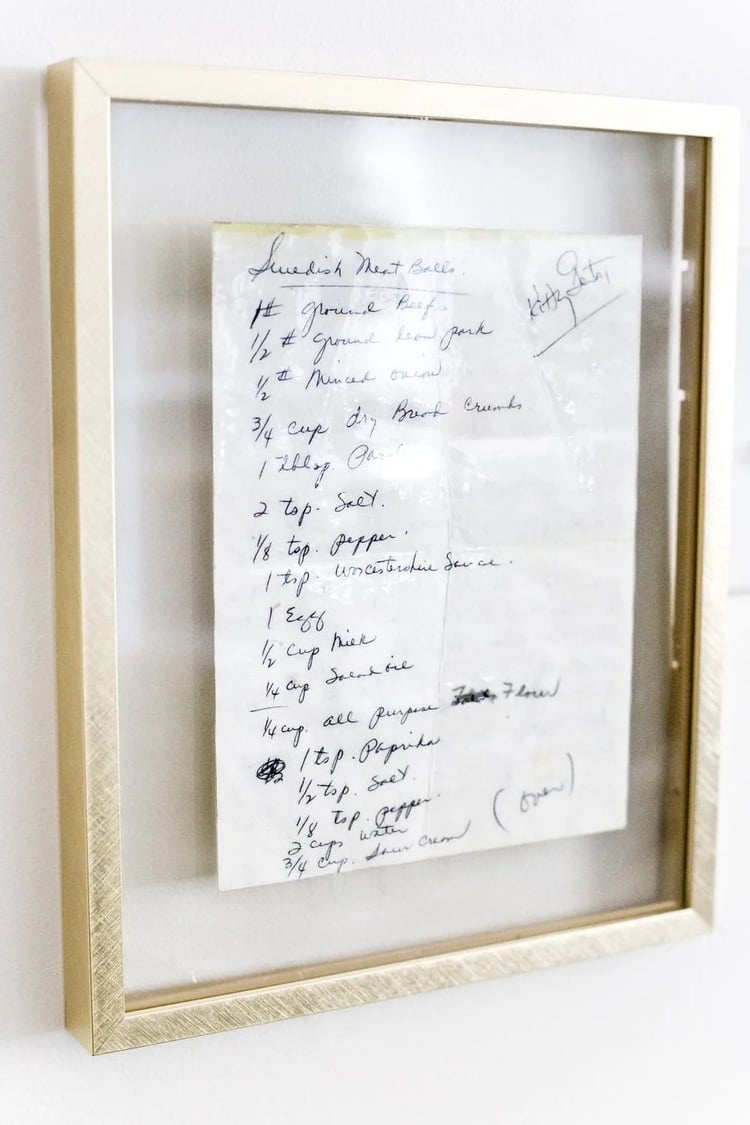 Swedish Meat Balls.
1# ground Beef.
1/2 # ground lean pork
1/2 # Minced onion
3/4 cup dry Bread Crumbs.
1 tblsp.
2 tsp. Salt.
1/8 tsp. pepper.
1 tsp. Worcestershire Sauce.
1 Egg
1/2 cup Milk
1/4 cup Salad oil
1/4 cup. all purpose Flour
1 tsp. Paprika
1/2 tsp. Salt.
1/8 tsp. pepper.
2 cups water
3/4 cup. Sour Cream
(over)